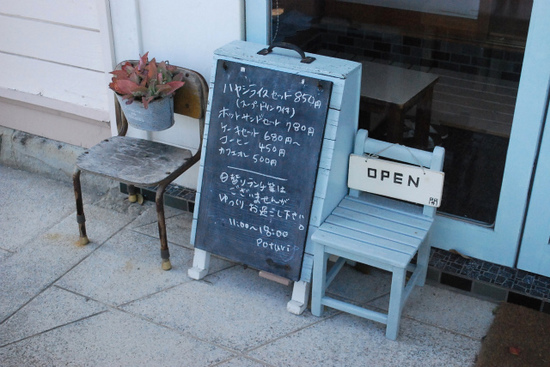 ハヤシライスセット 850円
(スープ・ドリンク付き)
ホットサンドセット 780円
ケーキセット 680円〜
コーヒー 450円
カフェオレ 500円
ランチ営業は
ございませんが
ゆっくりお過ごし下さい
11:00〜18:00
Poturi
OPEN